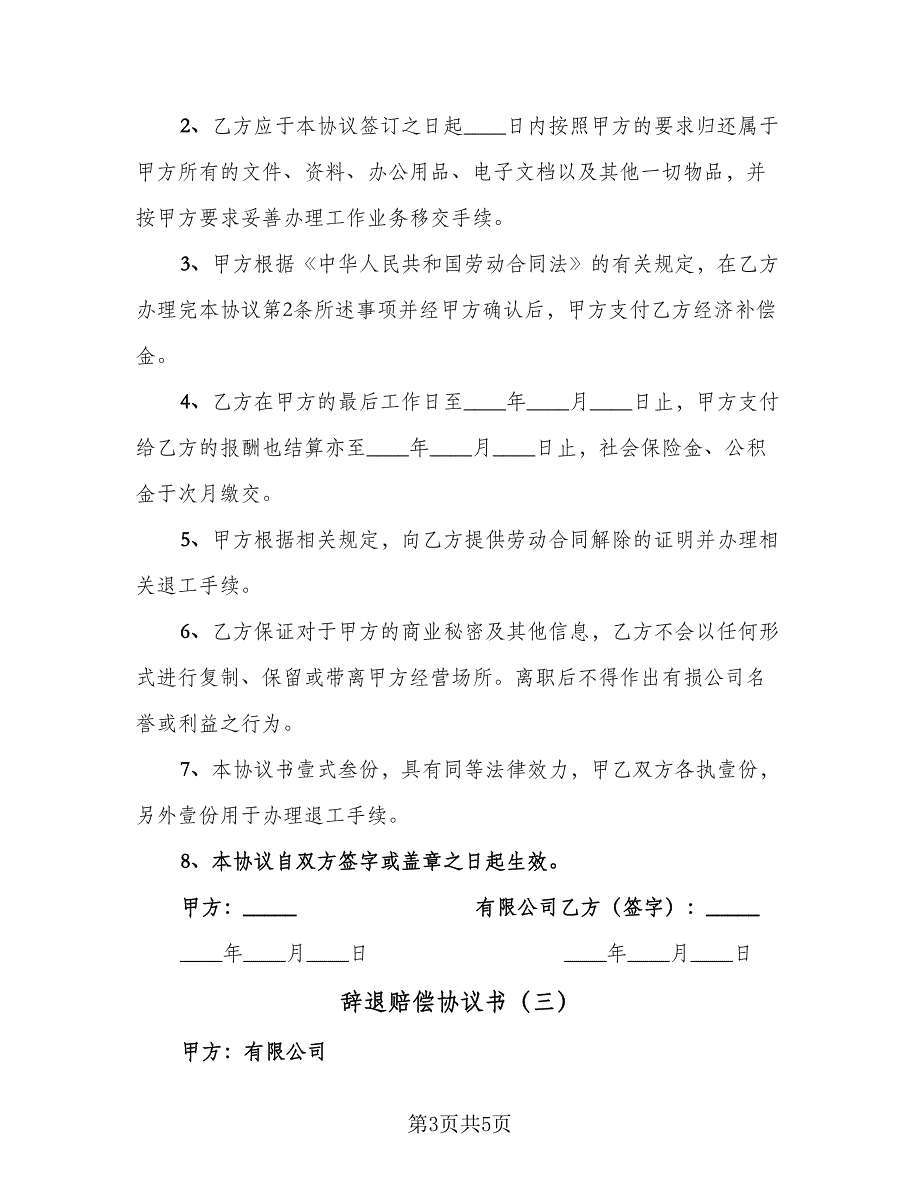 2、乙方应于本协议签订之日起____日内按照甲方的要求归还属于
甲方所有的文件、资料、办公用品、电子文档以及其他一切物品，并
按甲方要求妥善办理工作业务移交手续。
3、甲方根据《中华人民共和国劳动合同法》的有关规定，在乙方
办理完本协议第2条所述事项并经甲方确认后，甲方支付乙方经济补偿
金。
4、乙方在甲方的最后工作日至____年____月____日止，甲方支付
给乙方的报酬也结算亦至____年____月____日止，社会保险金、公积
金于次月缴交。
5、甲方根据相关规定，向乙方提供劳动合同解除的证明并办理相
关退工手续。
6、乙方保证对于甲方的商业秘密及其他信息，乙方不会以任何形
式进行复制、保留或带离甲方经营场所。离职后不得作出有损公司名
誉或利益之行为。
7、本协议书壹式叁份，具有同等法律效力，甲乙双方各执壹份，
另外壹份用于办理退工手续。
8、本协议自双方签字或盖章之日起生效。
甲方：_____ 有限公司乙方（签字）：_____
____年____月____日 ____年____月____日
辞退赔偿协议书（三）
甲方：有限公司
第3页共5页